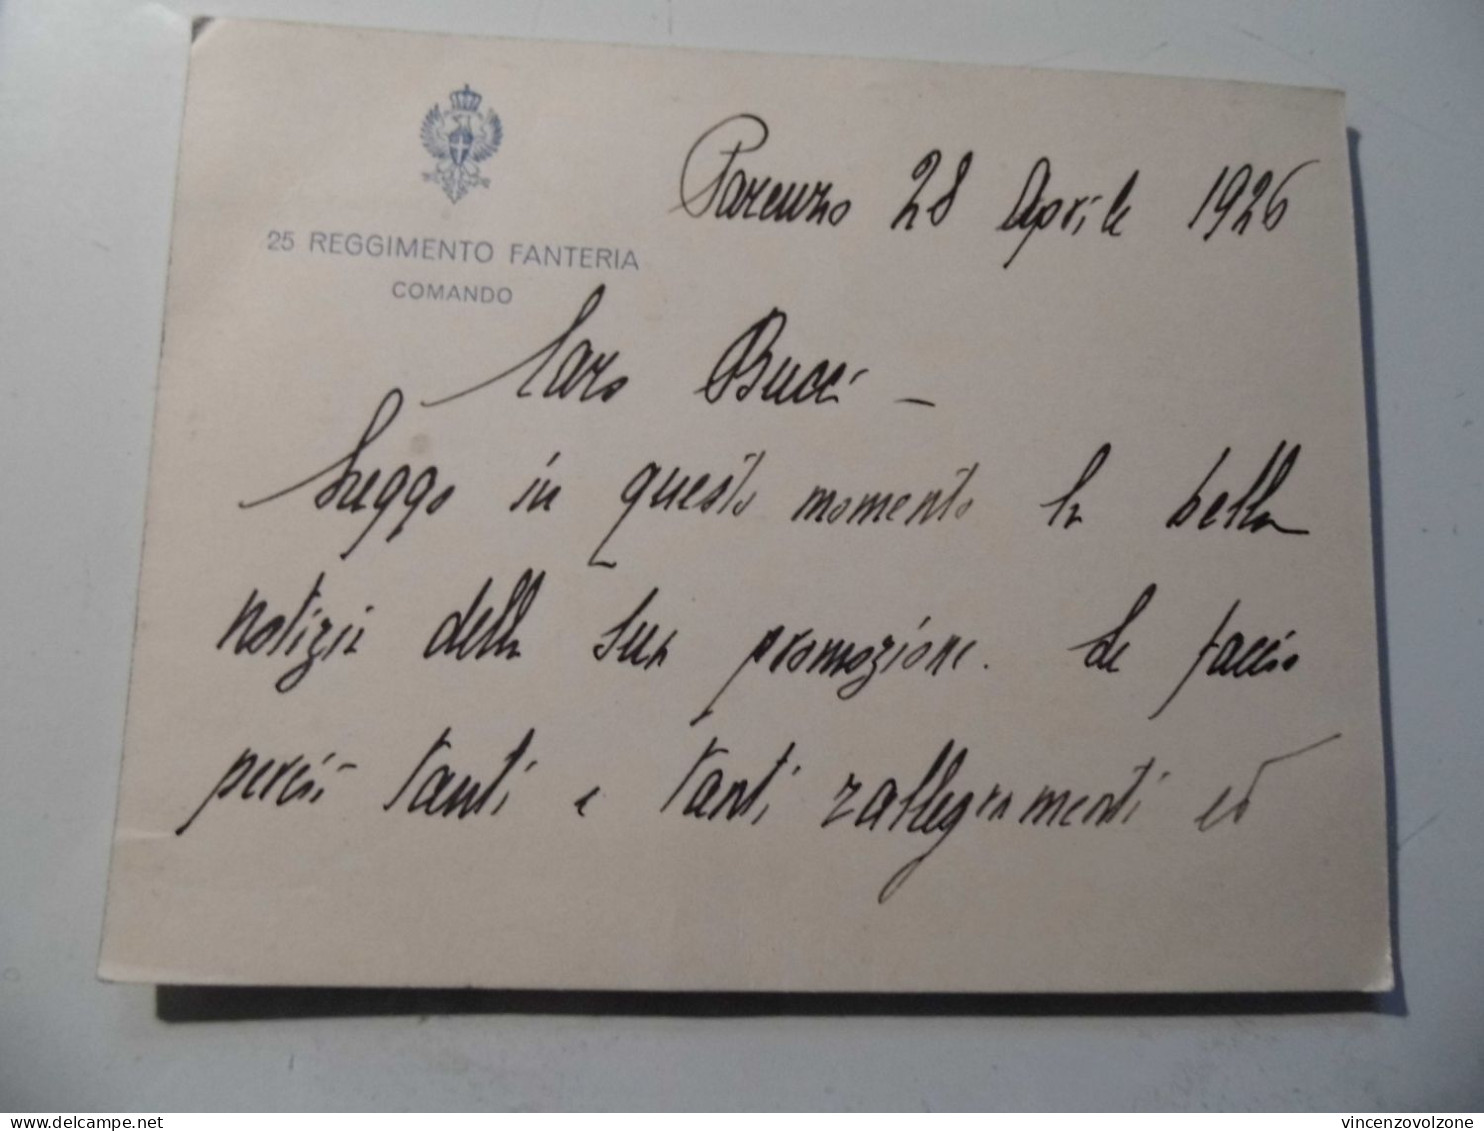 25 REGGIMENTO FANTERIA
COMANDO
Parenzo 28 Aprile 1926
Caro Bucci –
Leggo in questo momento la bella
notizia della sua promozione. Le faccio
perciò tanti e tanti rallegramenti ed
vincenzovolzone